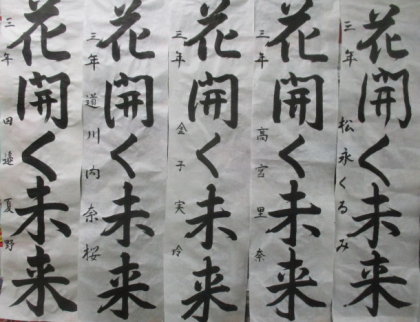 花開く未来
三年 松永くるみ
花開く未来
三年 高宮里奈
花開く未来
三年 金子実
花開く未来
三年 道川内奈桜
花開く未来
三年 田 夏野